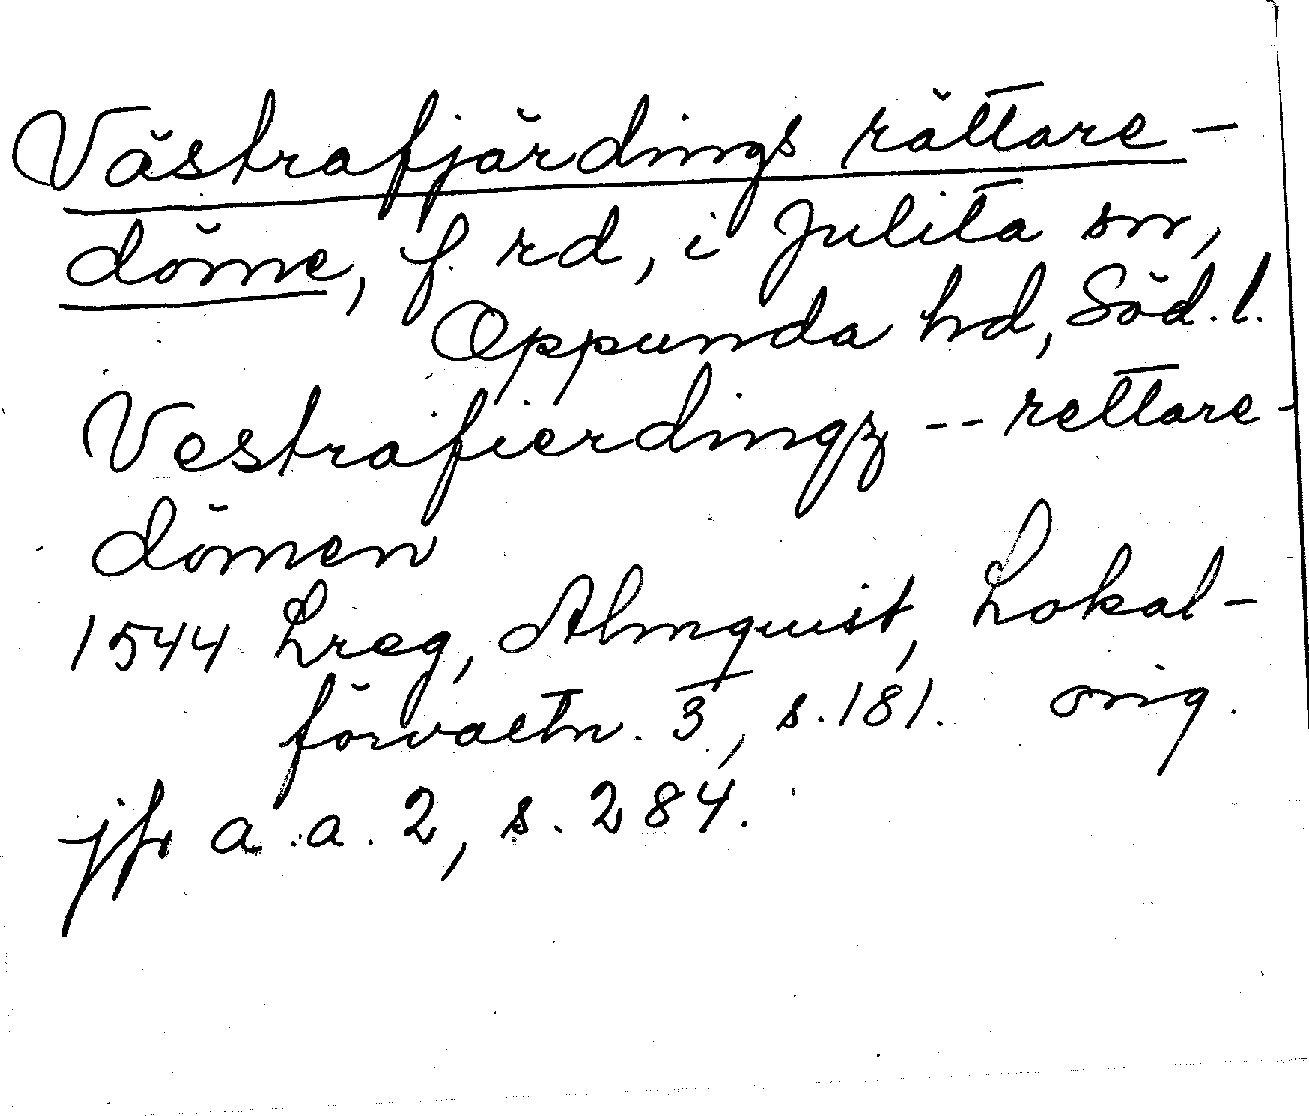 Västrafjärdings rättare-
döme, f. rd, i Julita sn,
Oppunda hd, Söd. l.
Vestrafierdingz -- rettare-
dömen
1544 Lreg, Almquist, Lokal-
förvaltn. 3, s. 181. orig.
jfr a. a. 2, s. 284.